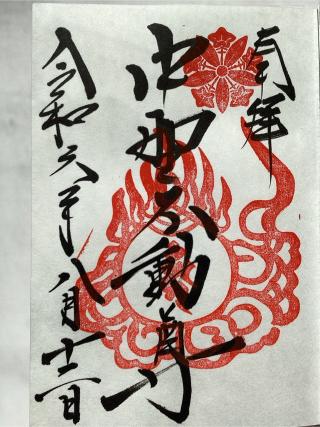 奉拝
中野不動尊
令和六年八月